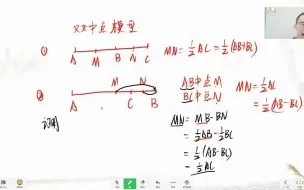 双中点模型
① A M B N C MN=½AC=½(AB+BC)
② A M C N B AB中点M
BC中点N
MN=½AC
=½(AB-BC)
MN=MB-BN
=½AB-½BC
=½(AB-BC)
=½AC